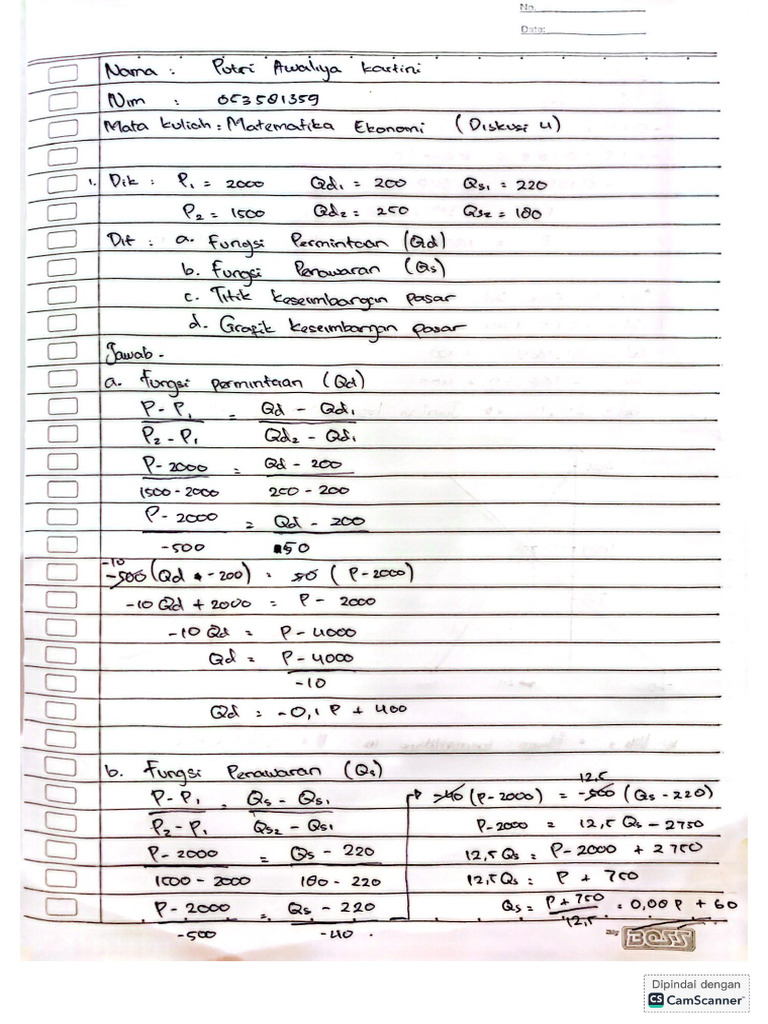 No.
Date:
Nama : Putri Awaliya Kartini
Nim : 053581359
Mata kuliah : Matematika Ekonomi (Diskusi 4)
1. Dik : P₁ = 2000 Qd₁ = 200 Qs₁ = 220
P₂ = 1500 Qd₂ = 250 Qs₂ = 180
Dit : a. Fungsi Permintaan (Qd)
b. Fungsi Penawaran (Qs)
c. Titik keseimbangan pasar
d. Grafik keseimbangan pasar
Jawab -
a. Fungsi permintaan (Qd)
P - P₁ = Qd - Qd₁
P₂ - P₁ Qd₂ - Qd₁
P - 2000 = Qd - 200
1500 - 2000 250 - 200
P - 2000 = Qd - 200
-500 50
-10
-500 (Qd - 200) = 50 (P - 2000)
-10 Qd + 2000 = P - 2000
-10 Qd = P - 4000
Qd = P - 4000
-10
Qd = -0,1 P + 400
b. Fungsi Penawaran (Qs)
P - P₁ = Qs - Qs₁
P₂ - P₁ Qs₂ - Qs₁
P - 2000 = Qs - 220
1500 - 2000 180 - 220
P - 2000 = Qs - 220
-500 -40
12,5
-40 (P - 2000) = -500 (Qs - 220)
P - 2000 = 12,5 Qs - 2750
12,5 Qs = P - 2000 + 2750
12,5 Qs = P + 750
Qs = P + 750 = 0,08 P + 60
12,5
BOSS
Dipindai dengan
CS CamScanner